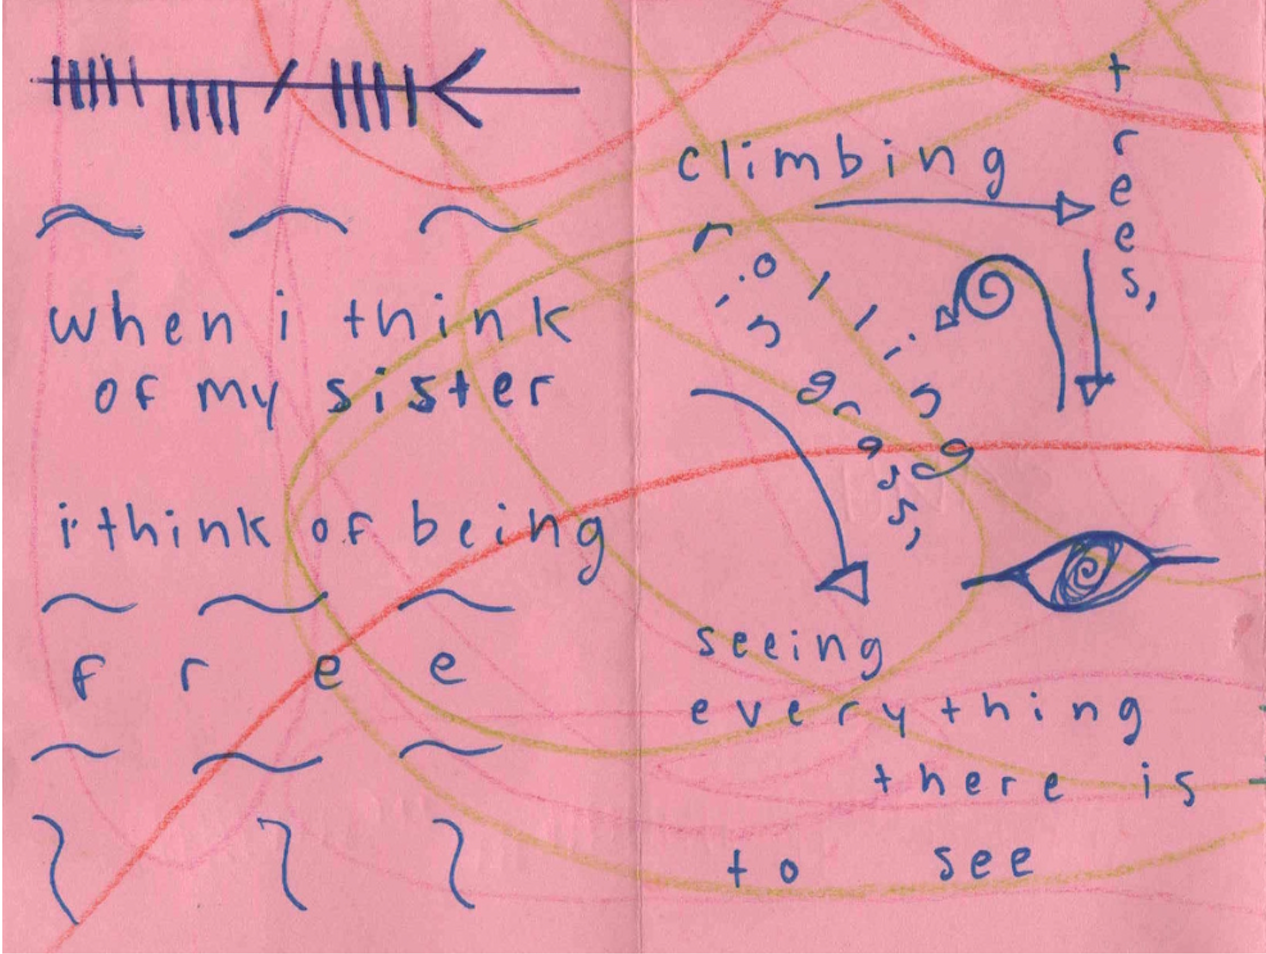 when i think
of my sister
i think of being
f r e e
climbing
trees,
rolling
in grass,
seeing
everything
there is
to see